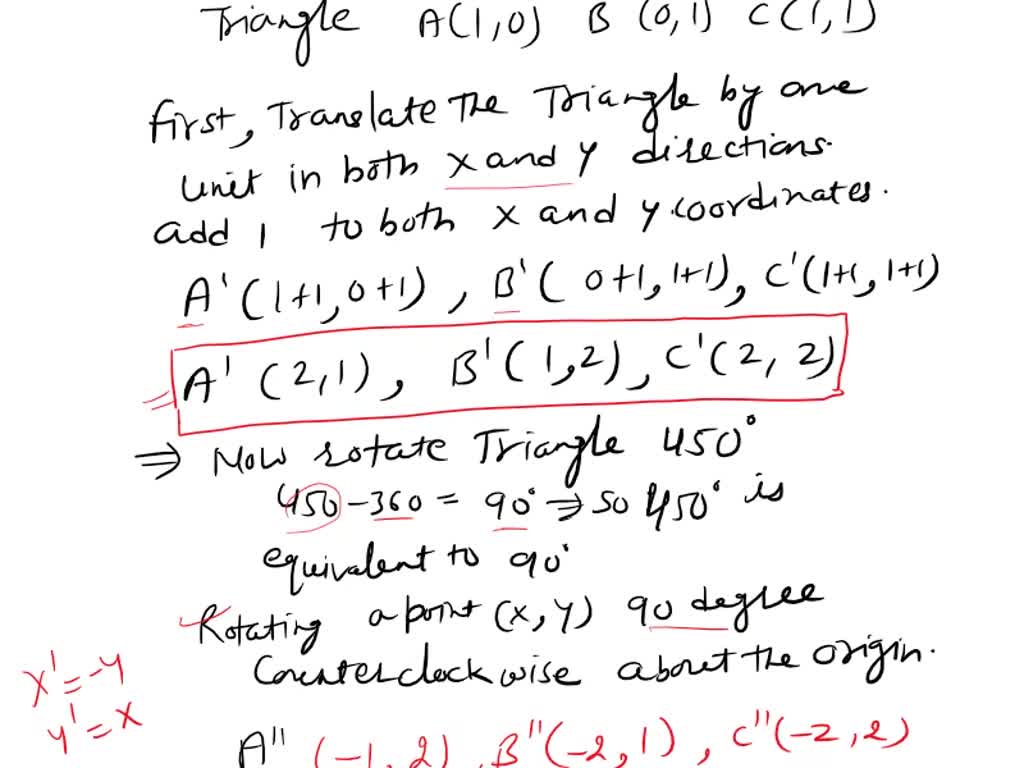 Triangle A(1,0) B (0,1) C(1,1)
first, Translate The Triangle by one
unit in both x and y directions.
add 1 to both x and y coordinates.
A'(1+1,0+1), B'(0+1,1+1), C'(1+1,1+1)
A'(2,1), B'(1,2), C'(2,2)
⇒ Now rotate Triangle 450°
450-360 = 90° ⇒ so 450° is
equivalent to 90°
Rotating a point (x,y) 90 degree
Counterclockwise about the origin.
x'=-y
y'=x
A''(-1,2), B''(-2,1), C''(-2,2)